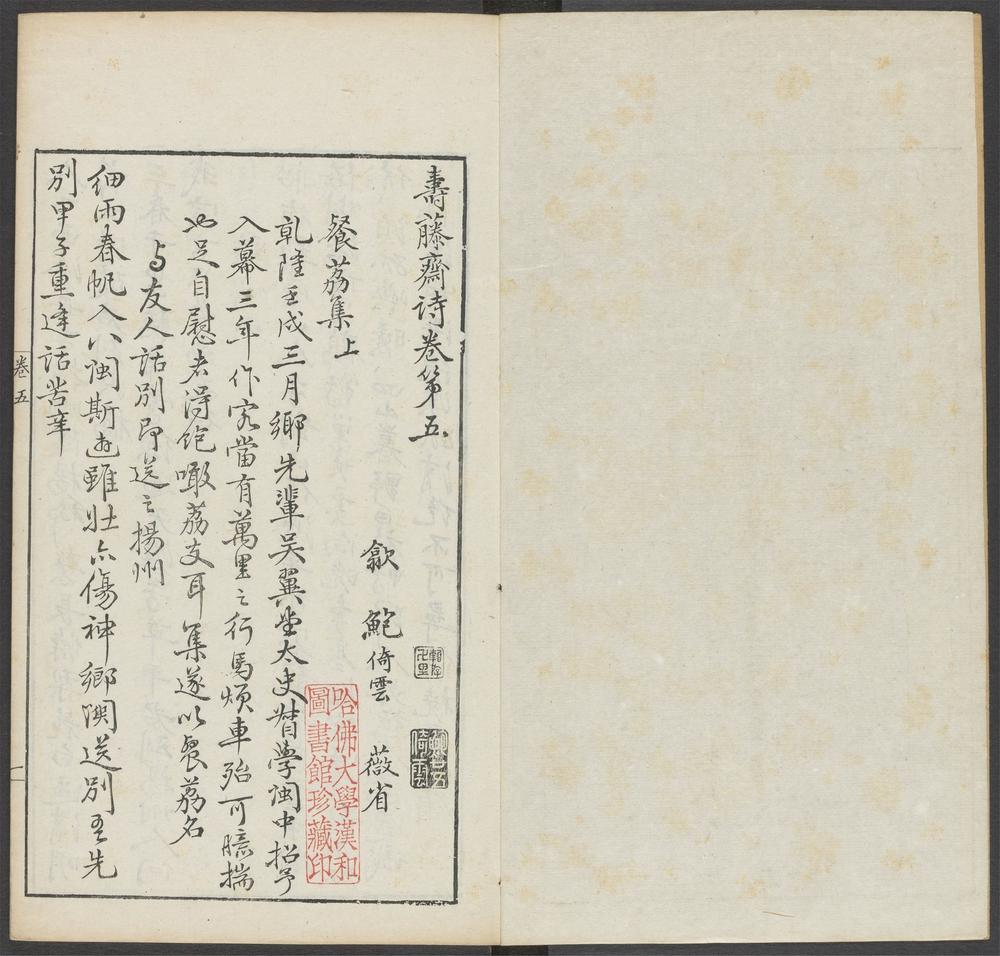 壽藤齋詩卷第五
歙 鮑倚雲 薇省
餐荔集上
乾隆壬戌三月鄉先輩吴翼堂太史督學閩中招予
入幕三年作客當有萬里之行馬煩車殆可臆揣
也足自慰者得飽噉荔支耳集遂以餐荔名
与友人話別即送之揚州
細雨春帆入八閩斯遊雖壯亦傷神鄉関送別吾先
別甲子重逢話苦辛
卷五
一
哈佛大學漢和
圖書館珍藏印